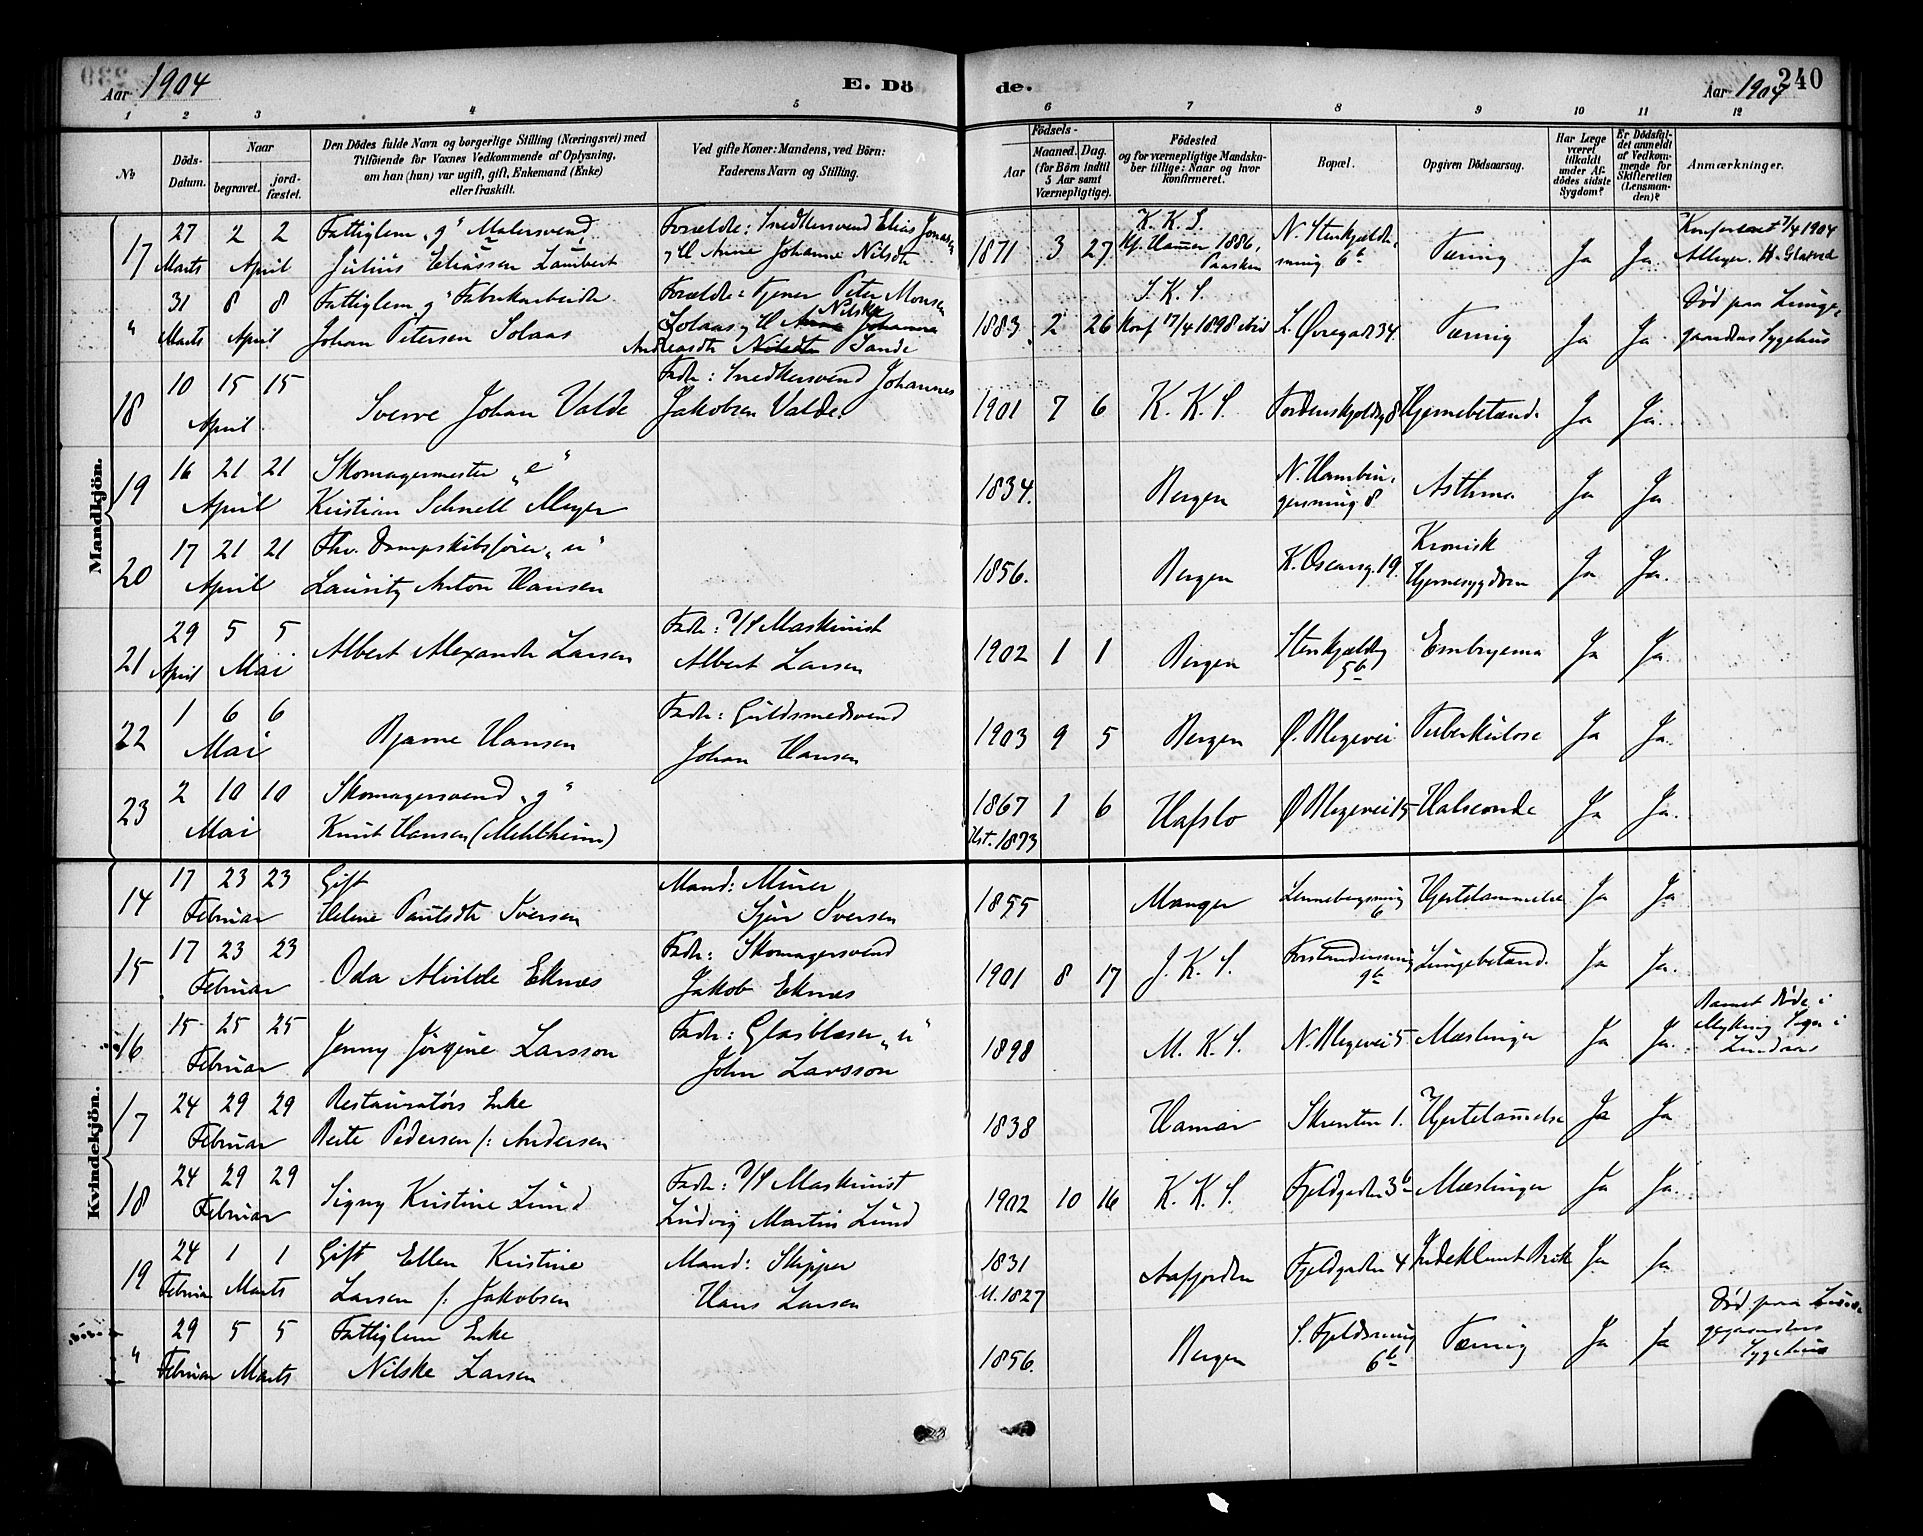 Aar 1904
E. Dö
de.
Aar 1904
240
1 2 3 4 5 6 7 8 9 10 11 12
No
Döds-Datum.
Naar
begravet.
jord-fæstet.
Den Dödes fulde Navn og borgerlige Stilling (Næringsvei) med
Tilföiende for Voxnes Vedkommende af Oplysning,
om han (hun) var ugift, gift, Enkemand (Enke)
eller fraskilt.
Ved gifte Koner: Mandens, ved Börn:
Faderens Navn og Stilling.
Födsels-
Aar
Maaned. Dag.
(for Börn indtil
5 Aar samt
Værnepligtige).
Födested
og for værnepligtige Mandska-
ber tillige: Naar og hvor
konfirmeret.
Bopæl.
Opgiven Dödsaarsag.
Har Læge
været
tilkaldt
under Af-
dödes sidste
Sygdom?
Er Dödsfal-
det anmeldt
af Vedkom-
mende for
Skifteretten
(Lensman-
den)?
Anmærkninger.
Mandkjön.
17 27 Marts 2 2 April
Fattiglem „g" Malersvend
Julius Eliassen Lambert
Forældre: Snedkersvend Elias Jonasen
og H Anne Johanne Nilsdtr
1871 3 27
K. K. S.
1886,
6b
Tæring
Ja Ja
7/4 1904
" 31 Marts 8 8 April
Fattiglem g" Fabrikarbeider
Johan Petersen Solaas
Forældre: Tjener Peter Monsen
Solaas og H Anne Nilske Johanna
Andreasdtr Nilsdtr Sande
1883 2 26
J. K. S.
Konf 17/4 1898
L. Øvregade 34.
Tæring
Ja Ja
Död paa Lunge-
gaardens Sygehus
18 10 15 15 April
Sverre Johan Valde
Fader: Snedkersvend Johannes
Jakobsen Valde
1901 7 6
K. K. S.
Tordenskjoldsg 8
Hjernebetænd.
Ja Ja
19 16 21 21 April
Skomagermester „e"
Kristian Schnell Meyer
1834.
Bergen
8
Asthma
Ja Ja
20 17 21 21 April
Fhv. Dampskibsfører „u"
Lauritz Anton Hansen
1856.
Bergen
K. Oscarsg. 19.
Kronisk
Hjernesygdom
Ja Ja.
21 29 April 5 5 Mai
Albert Alexander Larsen
Fader: D/S Maskinist
Albert Larsen
1902 1 1
Bergen
Stenkjelderg
5b
Embryema
Ja Ja
22 1 6 6 Mai
Bjarne Hansen
Fader: Guldsmedsvend
Johan Hansen
1903 9 5
Bergen
Ø. Blegevei
Tuberkulose
Ja Ja
23 2 10 10 Mai
Skomagersvend „g"
Knut Hansen (Mehlheim)
1867 1 6
Hst. 1873
Hafslo
Ø Blegevei 15
Halsonde
Ja Ja.
Kvindekjön.
14 17 23 23 Februar
Gift
Helene Paulsdtr Iversen
Mand: Murer
Sjur Iversen
1855
Manger
6
Hjertelammelse
Ja Ja
15 17 23 23 Februar
Oda Alvilde Eknes
Fader: Skomagersvend
Jakob Eknes
1901 8 17
J. K. S.
Forstandersmug
9b
Lungebetænd.
Ja Ja
16 15 25 25 Februar
Jenny Jörgine Larsson
Fader: Glasblæser „u"
John Larsson
1898
M. K. S.
N. Blegevei 5
Mæslinger
Ja Ja.
Barnet døde i
Lindaas
17 24 29 29 Februar
Restauratörs Enke
Berte Pedersen f: Andersen
1838
Hamar
Skrenten 1.
Hjertelammelse
Ja Ja
18 24 29 29 Februar
Signy Kristine Lund
Fader: D/S Maskinist
Ludvig Martin Lund
1902 10 16
K. K. S.
Fjeldgaden 3b
Mæslinger
Ja Ja.
19 24 Februar 1 1 Marts
Gift Ellen Kristine
Larsen f: Jakobsen
Mand: Skipper
Hans Larsen
1831
M. 1827
Aafjorden
Fjeldgaden 4
Indeklemt Brok
Ja Ja
" 29 Februar 5 5 Marts
Fattiglem Enke
Nilske Larsen
1856.
Bergen
S. Fjeldsmug
6b
Tæring
Ja Ja
Död paa Lun-
gegaardens
Sygehus